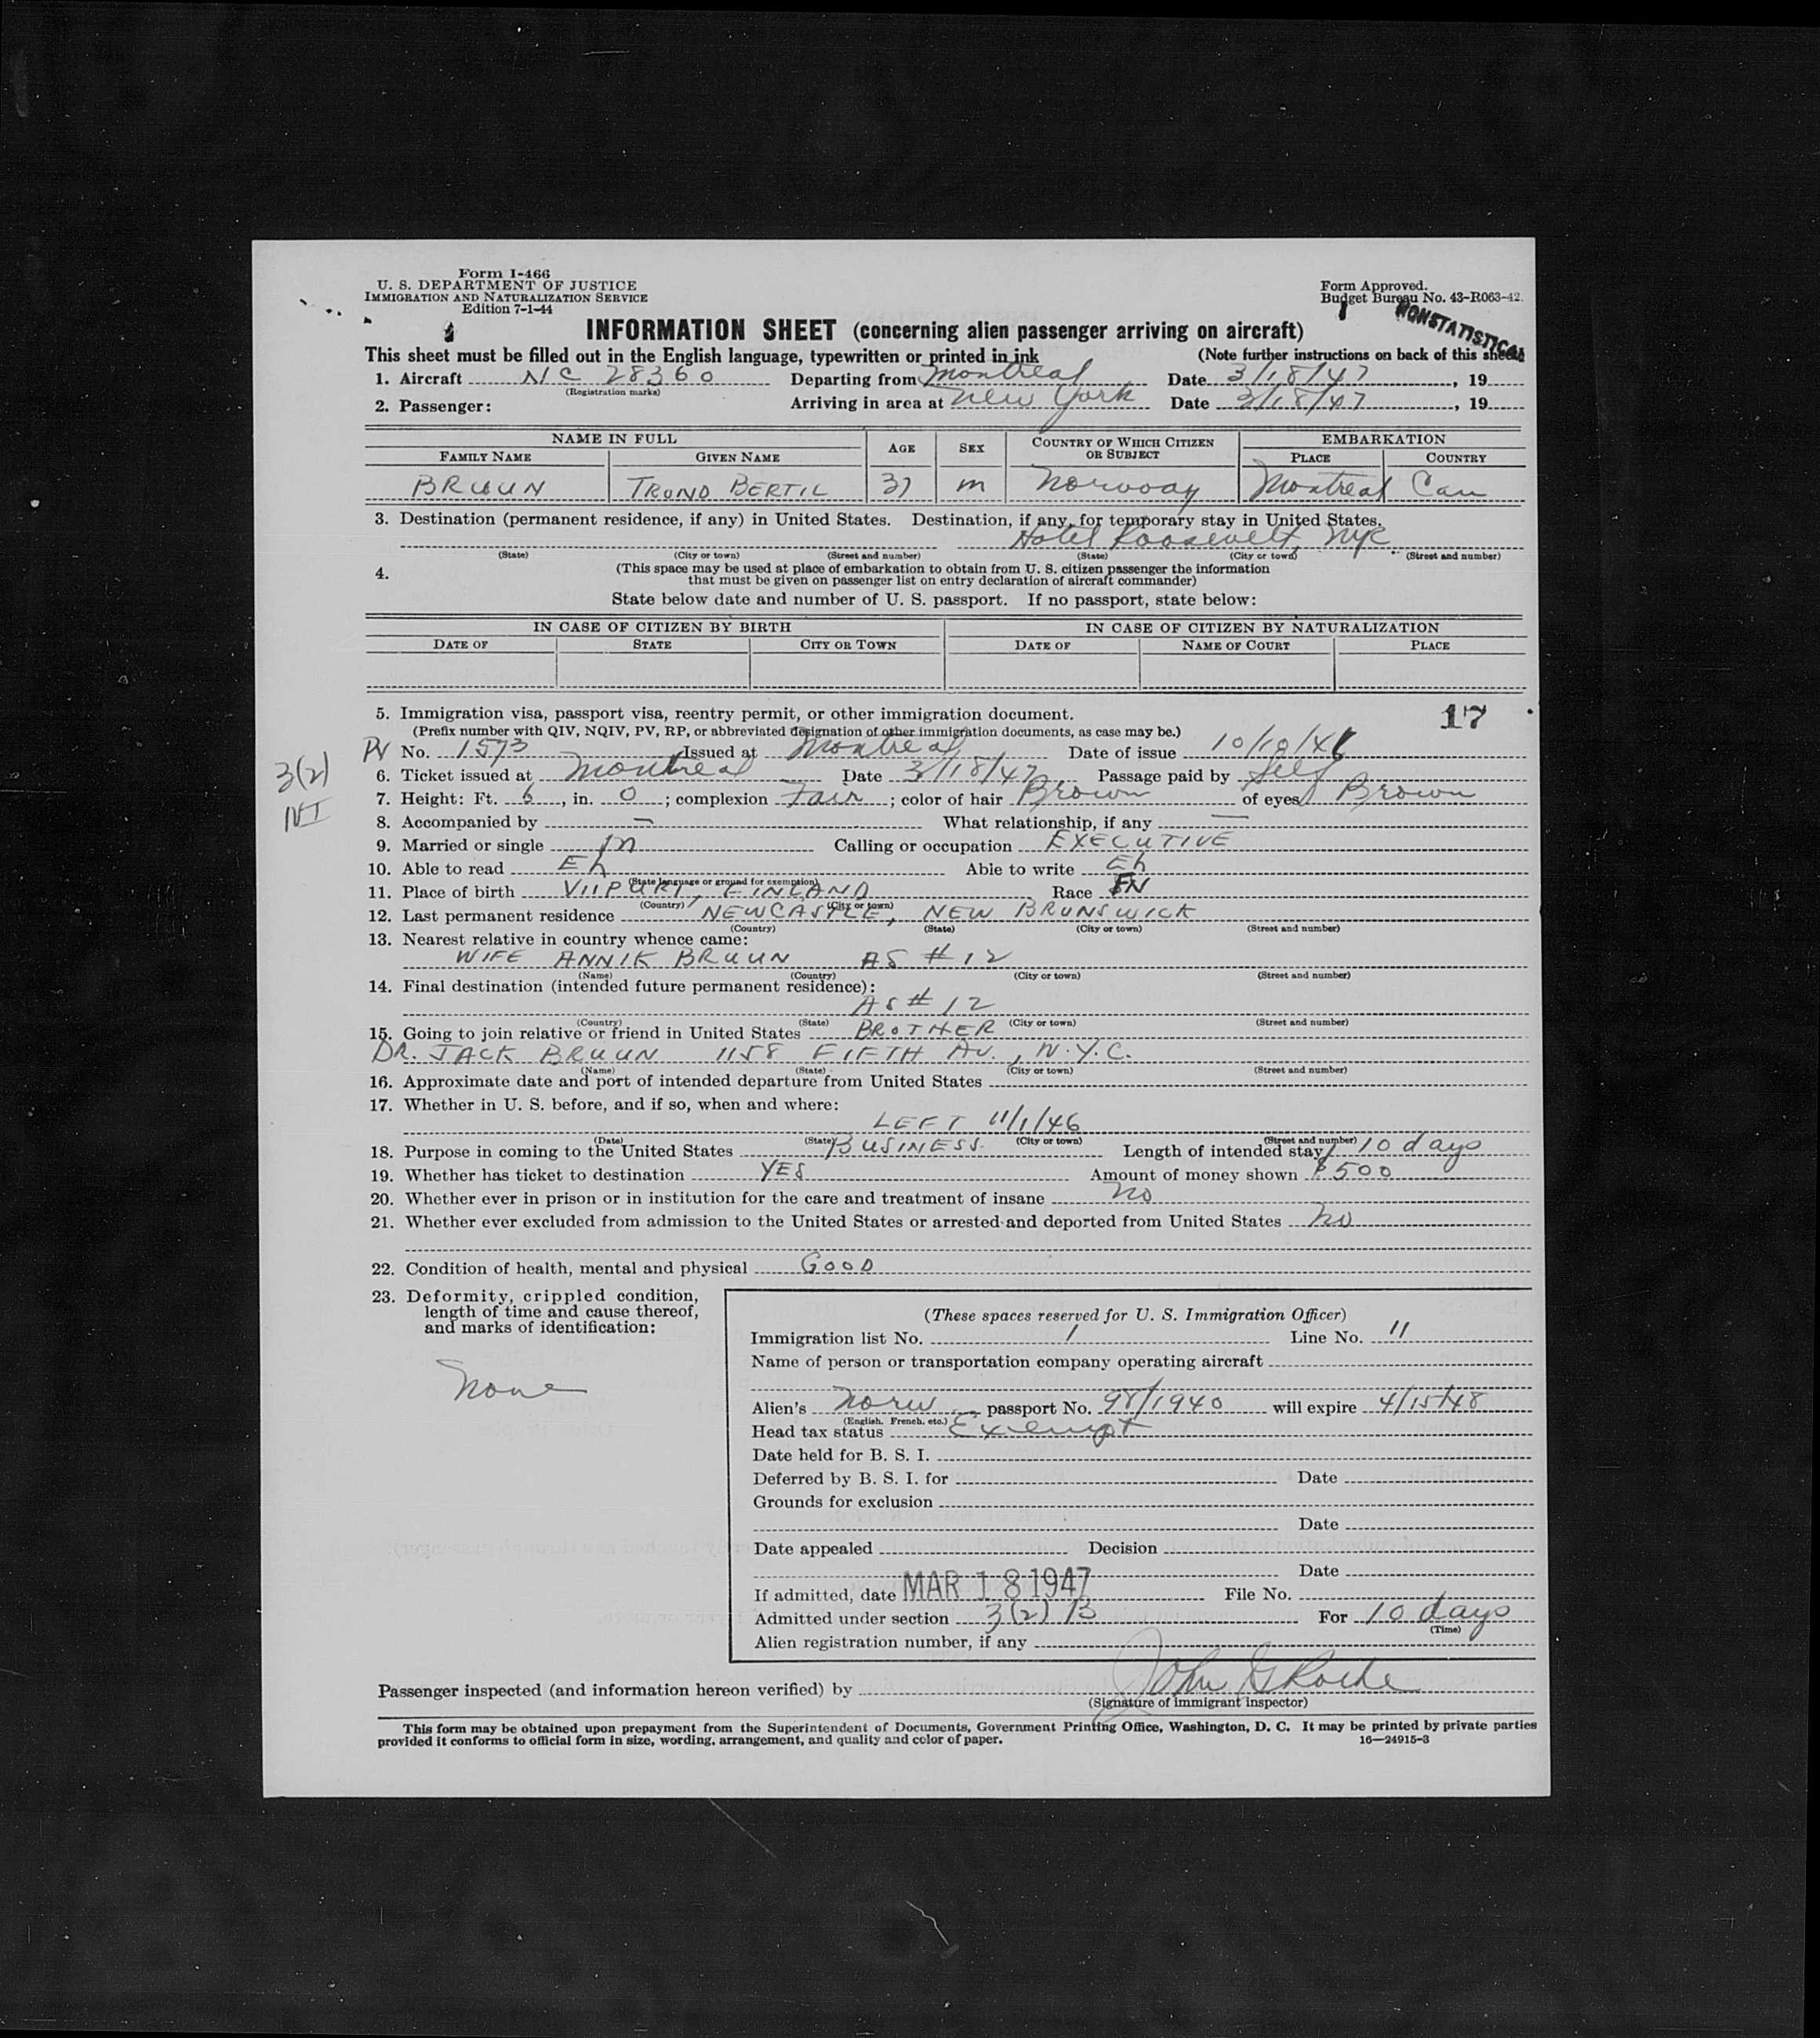 Form I-466
U. S. DEPARTMENT OF JUSTICE
IMMIGRATION AND NATURALIZATION SERVICE
Edition 7-1-44
Form Approved.
Budget Bureau No. 43-R063-42.
NONSTATISTICAL
INFORMATION SHEET (concerning alien passenger arriving on aircraft)
This sheet must be filled out in the English language, typewritten or printed in ink (Note further instructions on back of this sheet)
1. Aircraft NC 28360 Departing from Montreal Date 3/18/47, 19
(Registration marks)
2. Passenger: Arriving in area at New York Date 3/18/47, 19
NAME IN FULL AGE SEX COUNTRY OF WHICH CITIZEN OR SUBJECT EMBARKATION
FAMILY NAME GIVEN NAME PLACE COUNTRY
BRUUN TROND BERTIL 37 m Norway Montreal Can
3. Destination (permanent residence, if any) in United States. Destination, if any, for temporary stay in United States.
Hotel Roosevelt, NYC
(State) (City or town) (Street and number) (State) (City or town) (Street and number)
4. (This space may be used at place of embarkation to obtain from U. S. citizen passenger the information
that must be given on passenger list on entry declaration of aircraft commander)
State below date and number of U. S. passport. If no passport, state below:
IN CASE OF CITIZEN BY BIRTH IN CASE OF CITIZEN BY NATURALIZATION
DATE OF STATE CITY OR TOWN DATE OF NAME OF COURT PLACE
5. Immigration visa, passport visa, reentry permit, or other immigration document. 17
(Prefix number with QIV, NQIV, PV, RP, or abbreviated designation of other immigration documents, as case may be.)
PV No. 1573 Issued at Montreal Date of issue 10/10/46
3(2)
NI
6. Ticket issued at Montreal Date 3/18/47 Passage paid by Self
7. Height: Ft. 6, in. 0; complexion Fair; color of hair Brown of eyes Brown
8. Accompanied by — What relationship, if any —
9. Married or single m Calling or occupation EXECUTIVE
10. Able to read Eh Able to write Eh
(State language or ground for exemption)
11. Place of birth VIIPURI, FINLAND Race
(Country) (City or town)
12. Last permanent residence NEWCASTLE, NEW BRUNSWICK
(Country) (State) (City or town) (Street and number)
13. Nearest relative in country whence came:
WIFE ANNIK BRUUN AS # 12
(Name) (Country) (City or town) (Street and number)
14. Final destination (intended future permanent residence):
AS # 12
(Country) (State) (City or town) (Street and number)
15. Going to join relative or friend in United States BROTHER
DR. JACK BRUUN 1158 FIFTH AV., N.Y.C.
(Name) (State) (City or town) (Street and number)
16. Approximate date and port of intended departure from United States
17. Whether in U. S. before, and if so, when and where:
LEFT 11/1/46
(Date) (State) (City or town) (Street and number)
18. Purpose in coming to the United States BUSINESS Length of intended stay 10 days
19. Whether has ticket to destination YES Amount of money shown $500
20. Whether ever in prison or in institution for the care and treatment of insane no
21. Whether ever excluded from admission to the United States or arrested and deported from United States no
22. Condition of health, mental and physical GOOD
23. Deformity, crippled condition,
length of time and cause thereof,
and marks of identification:
None
(These spaces reserved for U. S. Immigration Officer)
Immigration list No. 1 Line No. 11
Name of person or transportation company operating aircraft
Alien's Norw passport No. 98/1940 will expire 4/15/48
(English, French, etc.)
Head tax status Exempt
Date held for B. S. I.
Deferred by B. S. I. for Date
Grounds for exclusion
Date
Date appealed Decision
Date
If admitted, date MAR 18 1947 File No.
Admitted under section 3(2) B For 10 days
(Time)
Alien registration number, if any
Passenger inspected (and information hereon verified) by John G Roche
(Signature of immigrant inspector)
This form may be obtained upon prepayment from the Superintendent of Documents, Government Printing Office, Washington, D. C. It may be printed by private parties
provided it conforms to official form in size, wording, arrangement, and quality and color of paper. 16—24915-3